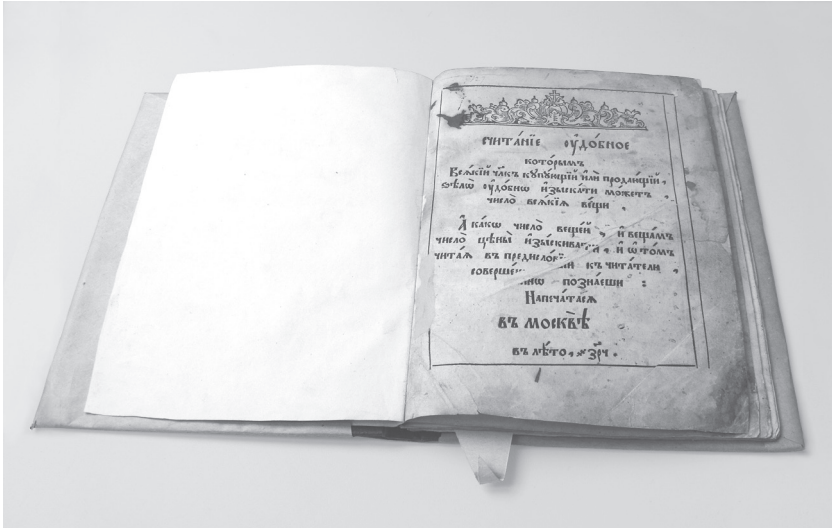 СЧИТА́НЇЕ ОУ҆ДО́БНОЕ
кото́рымъ
Всѧ́кїй члк҃ъ кꙋпꙋ́ющїй и҆лѝ продаю́щїй ,
ѕѣлѡ̀ оу҆до́бнѡ и҆зыска́ти мо́жетъ ,
число̀ всѧ́кїѧ ве́щи .
А҆ ка́кѡ число̀ веще́й , и҆ веща́мъ
число̀ цѣны̀ и҆зы́скивати , и҆ ѡ҆ то́мъ
чита́ѧ въ къ чита́тели ,
позна́еши :
Напеча́тасѧ
въ москвѣ̀
въ лѣ́то , ҂зрч .